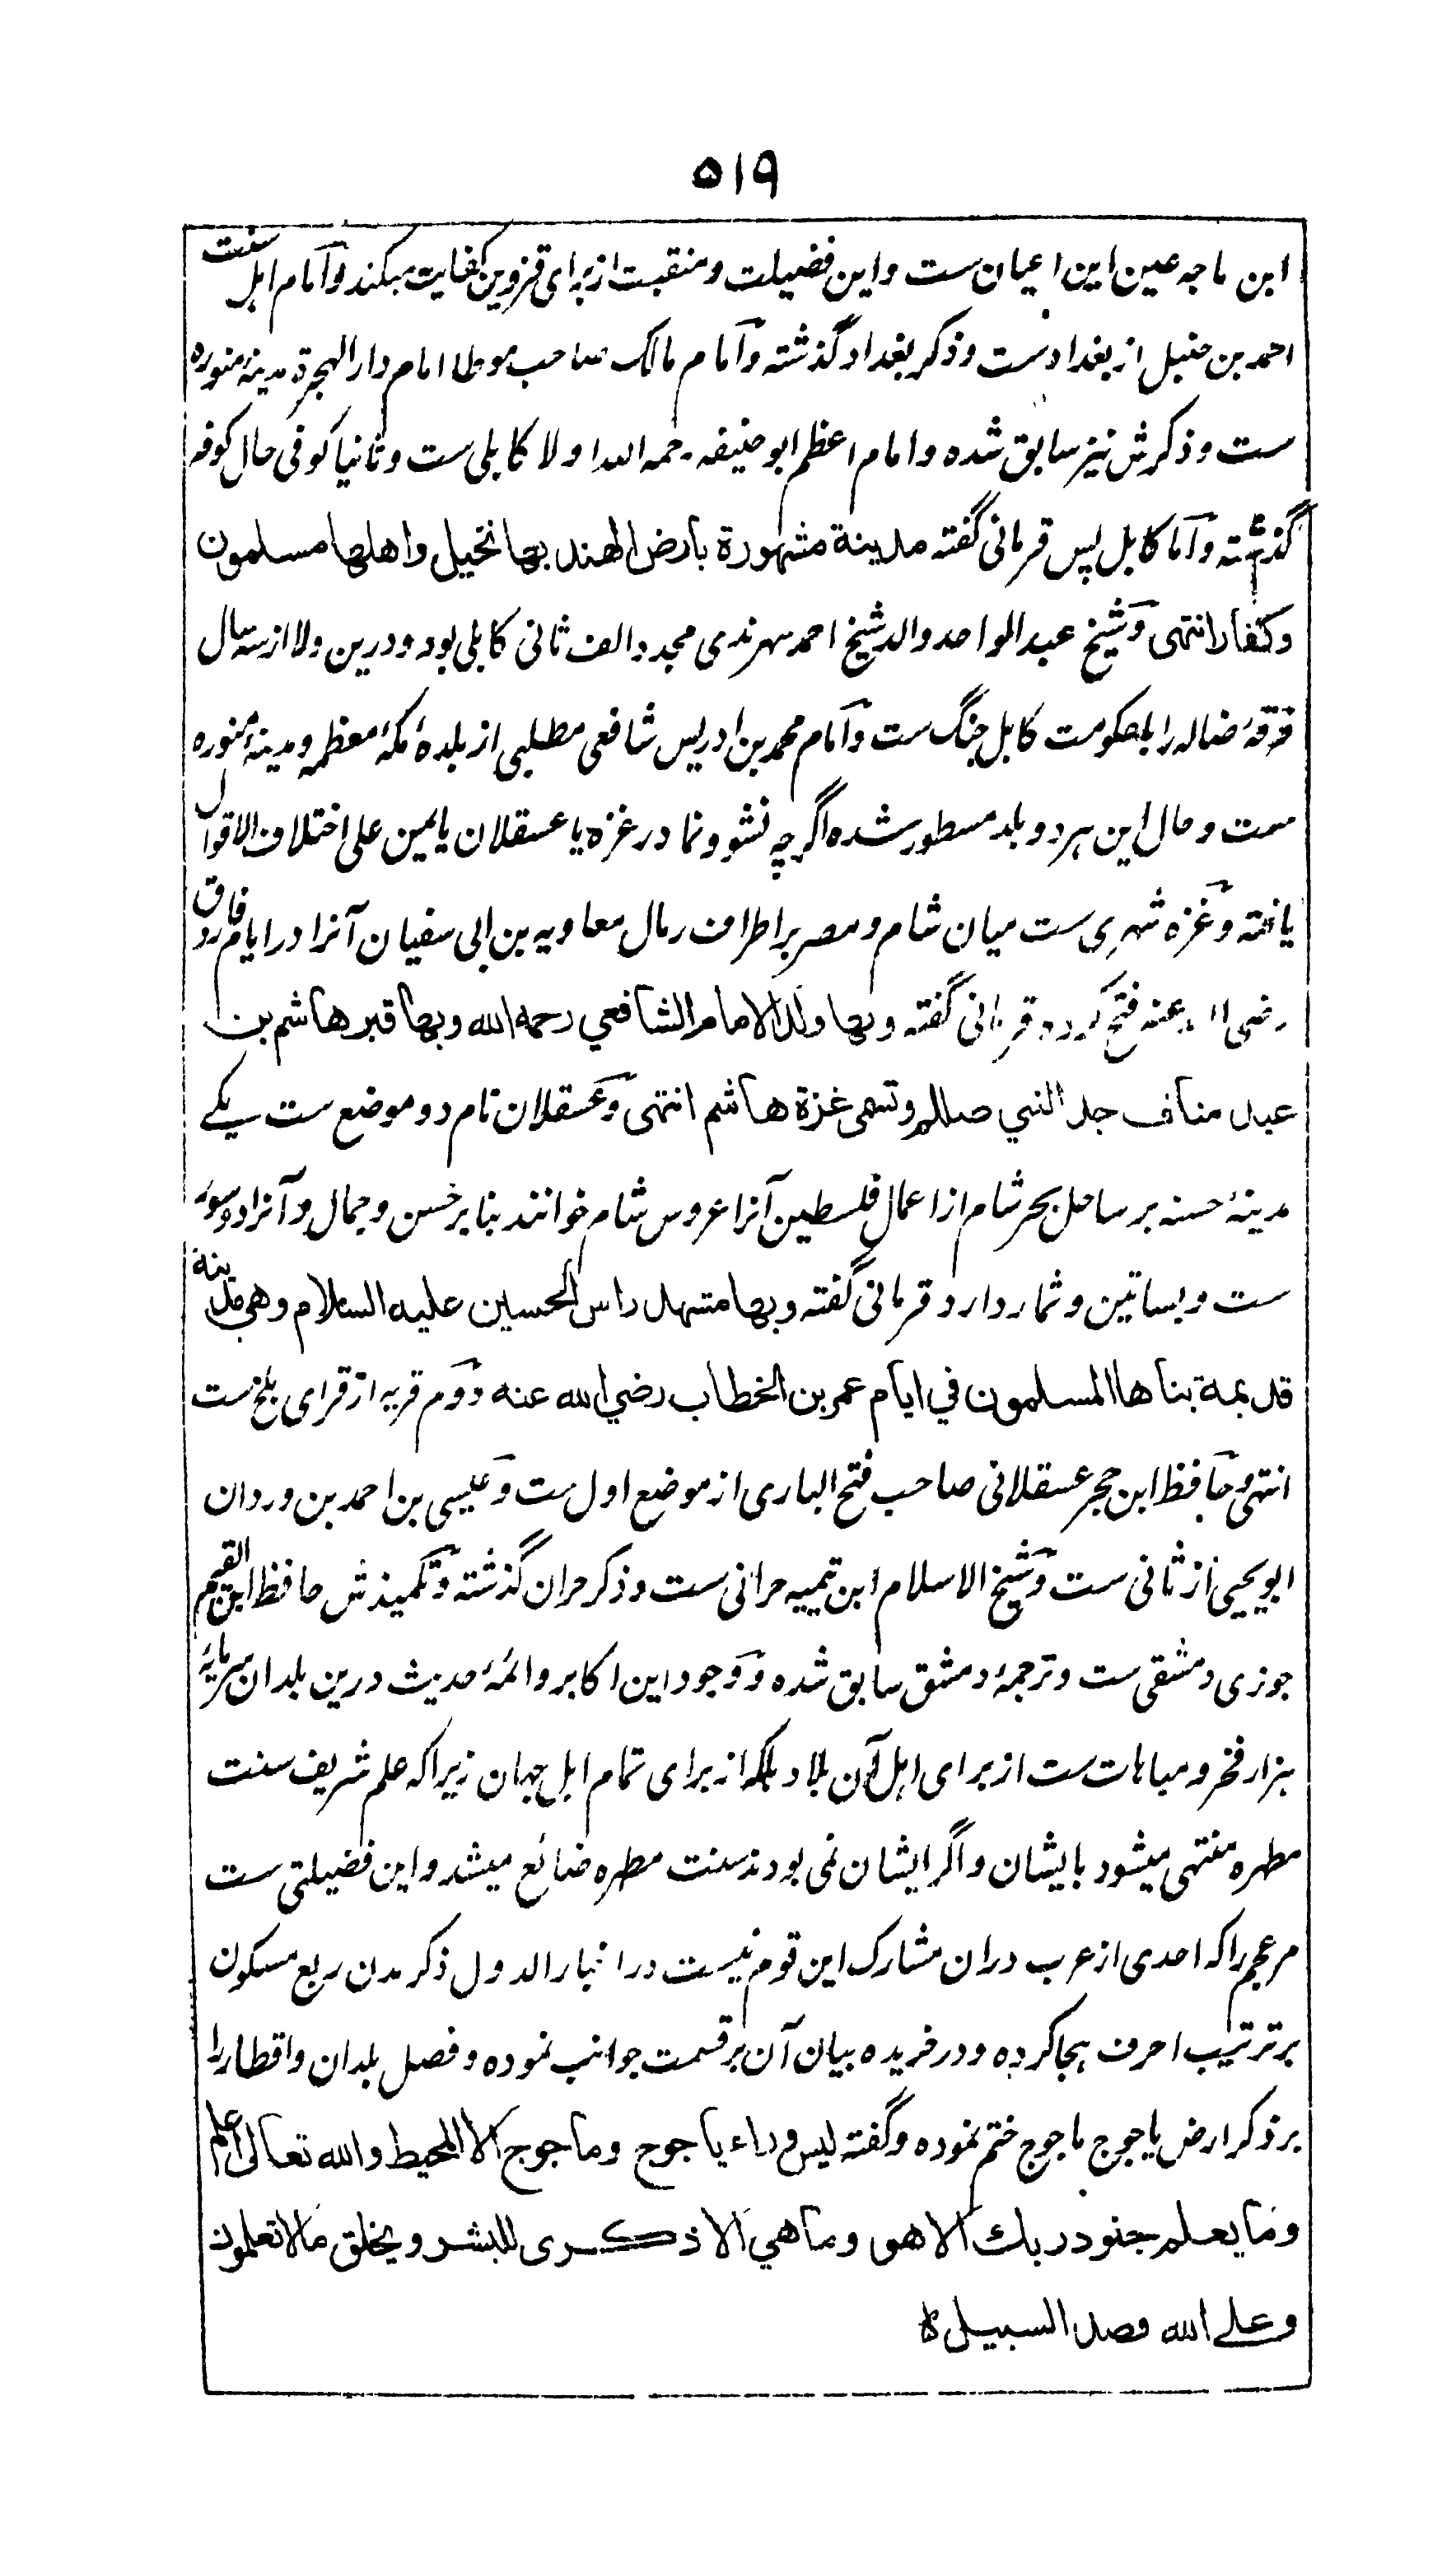 ۵۱۹
ابن ماجه عین این اعیان ست و این فضیلت و منقبت از برای قزوین کفایت میکند و امام اهل سنت
احمد بن حنبل از بغداد ست و ذکر بغداد گذشته و امام مالک صاحب موطا امام دار الهجرة مدینهٔ منوره
ست و ذکرش نیز سابق شده و امام اعظم ابو حنیفه رحمه الله اولا کابلی ست و ثانیا کوفی حال کوفه
گذشته و اما کابل پس قرمانی گفته مدينة مشهورة بارض الهند بها نخيل واهلها مسلمون
وكفار انتهی و شیخ عبد الواحد والد شیخ احمد سهرندی مجدد الف ثانی کابلی بود و درین ولا از سه سال
فرقهٔ ضاله را با حکومت کابل جنگ ست و امام محمد بن ادریس شافعی مطلبی از بلدهٔ مکهٔ معظمه و مدینهٔ منوره
ست و حال این هر دو بلد مسطور شده اگرچه نشو و نما در غزه یا عسقلان یا یمن علی اختلاف الاقوال
یافته و غزه شهری ست میان شام و مصر بر اطراف رمال معاویه بن ابی سفیان آنرا در ایام فاروق
رضی الله عنه فتح کرده قرمانی گفته وبها ولد الامام الشافعي رحمه الله وبها قبر هاشم بن
عبد مناف جد النبي صللم وتسمى غزة هاشم انتهی و عسقلان نام دو موضع ست یکے
مدینهٔ حسنه بر ساحل بحر شام از اعمال فلسطین آنرا عروس شام خوانند بنا بر حسن و جمال و آنرا دو سور
ست و بساتین و ثمار دارد قرمانی گفته وبها مشهد راس الحسين عليه السلام وهي مدينة
قديمة بناها المسلمون في ايام عمر بن الخطاب رضي الله عنه دوم قریه از قرای بلخ ست
انتهی و حافظ ابن حجر عسقلانی صاحب فتح الباری از موضع اول ست و عیسی بن احمد بن وردان
ابو یحیی از ثانی ست و شیخ الاسلام ابن تیمیه حرانی ست و ذکر حران گذشته و تلمیذش حافظ ابن القیم
جوزی دمشقی ست و ترجمهٔ دمشق سابق شده و وجود این اکابر و ائمهٔ حدیث درین بلدان سرمایهٔ
هزار فخر و مباهات ست از برای اهل آن بلاد بلکه از برای تمام اهل جهان زیرا که علم شریف سنت
مطهره منتهی میشود بایشان و اگر ایشان نمی بودند سنت مطهره ضائع میشد و این فضیلتی ست
مر عجم را که احدی از عرب دران مشارک این قوم نیست در اخبار الدول ذکر مدن ربع مسکون
بر ترتیب احرف هجا کرده و در فریده بیان آن بر قسمت جوانب نموده و فصل بلدان و اقطار را
بر ذکر ارض یاجوج ماجوج ختم نموده و گفته ليس وراء ياجوج وماجوج الا المحيط والله تعالى اعلم
وما يعلم جنود ربك الا هو وما هي الا ذكرى للبشر ويخلق ما لا تعلمون
وعلى الله قصد السبيل